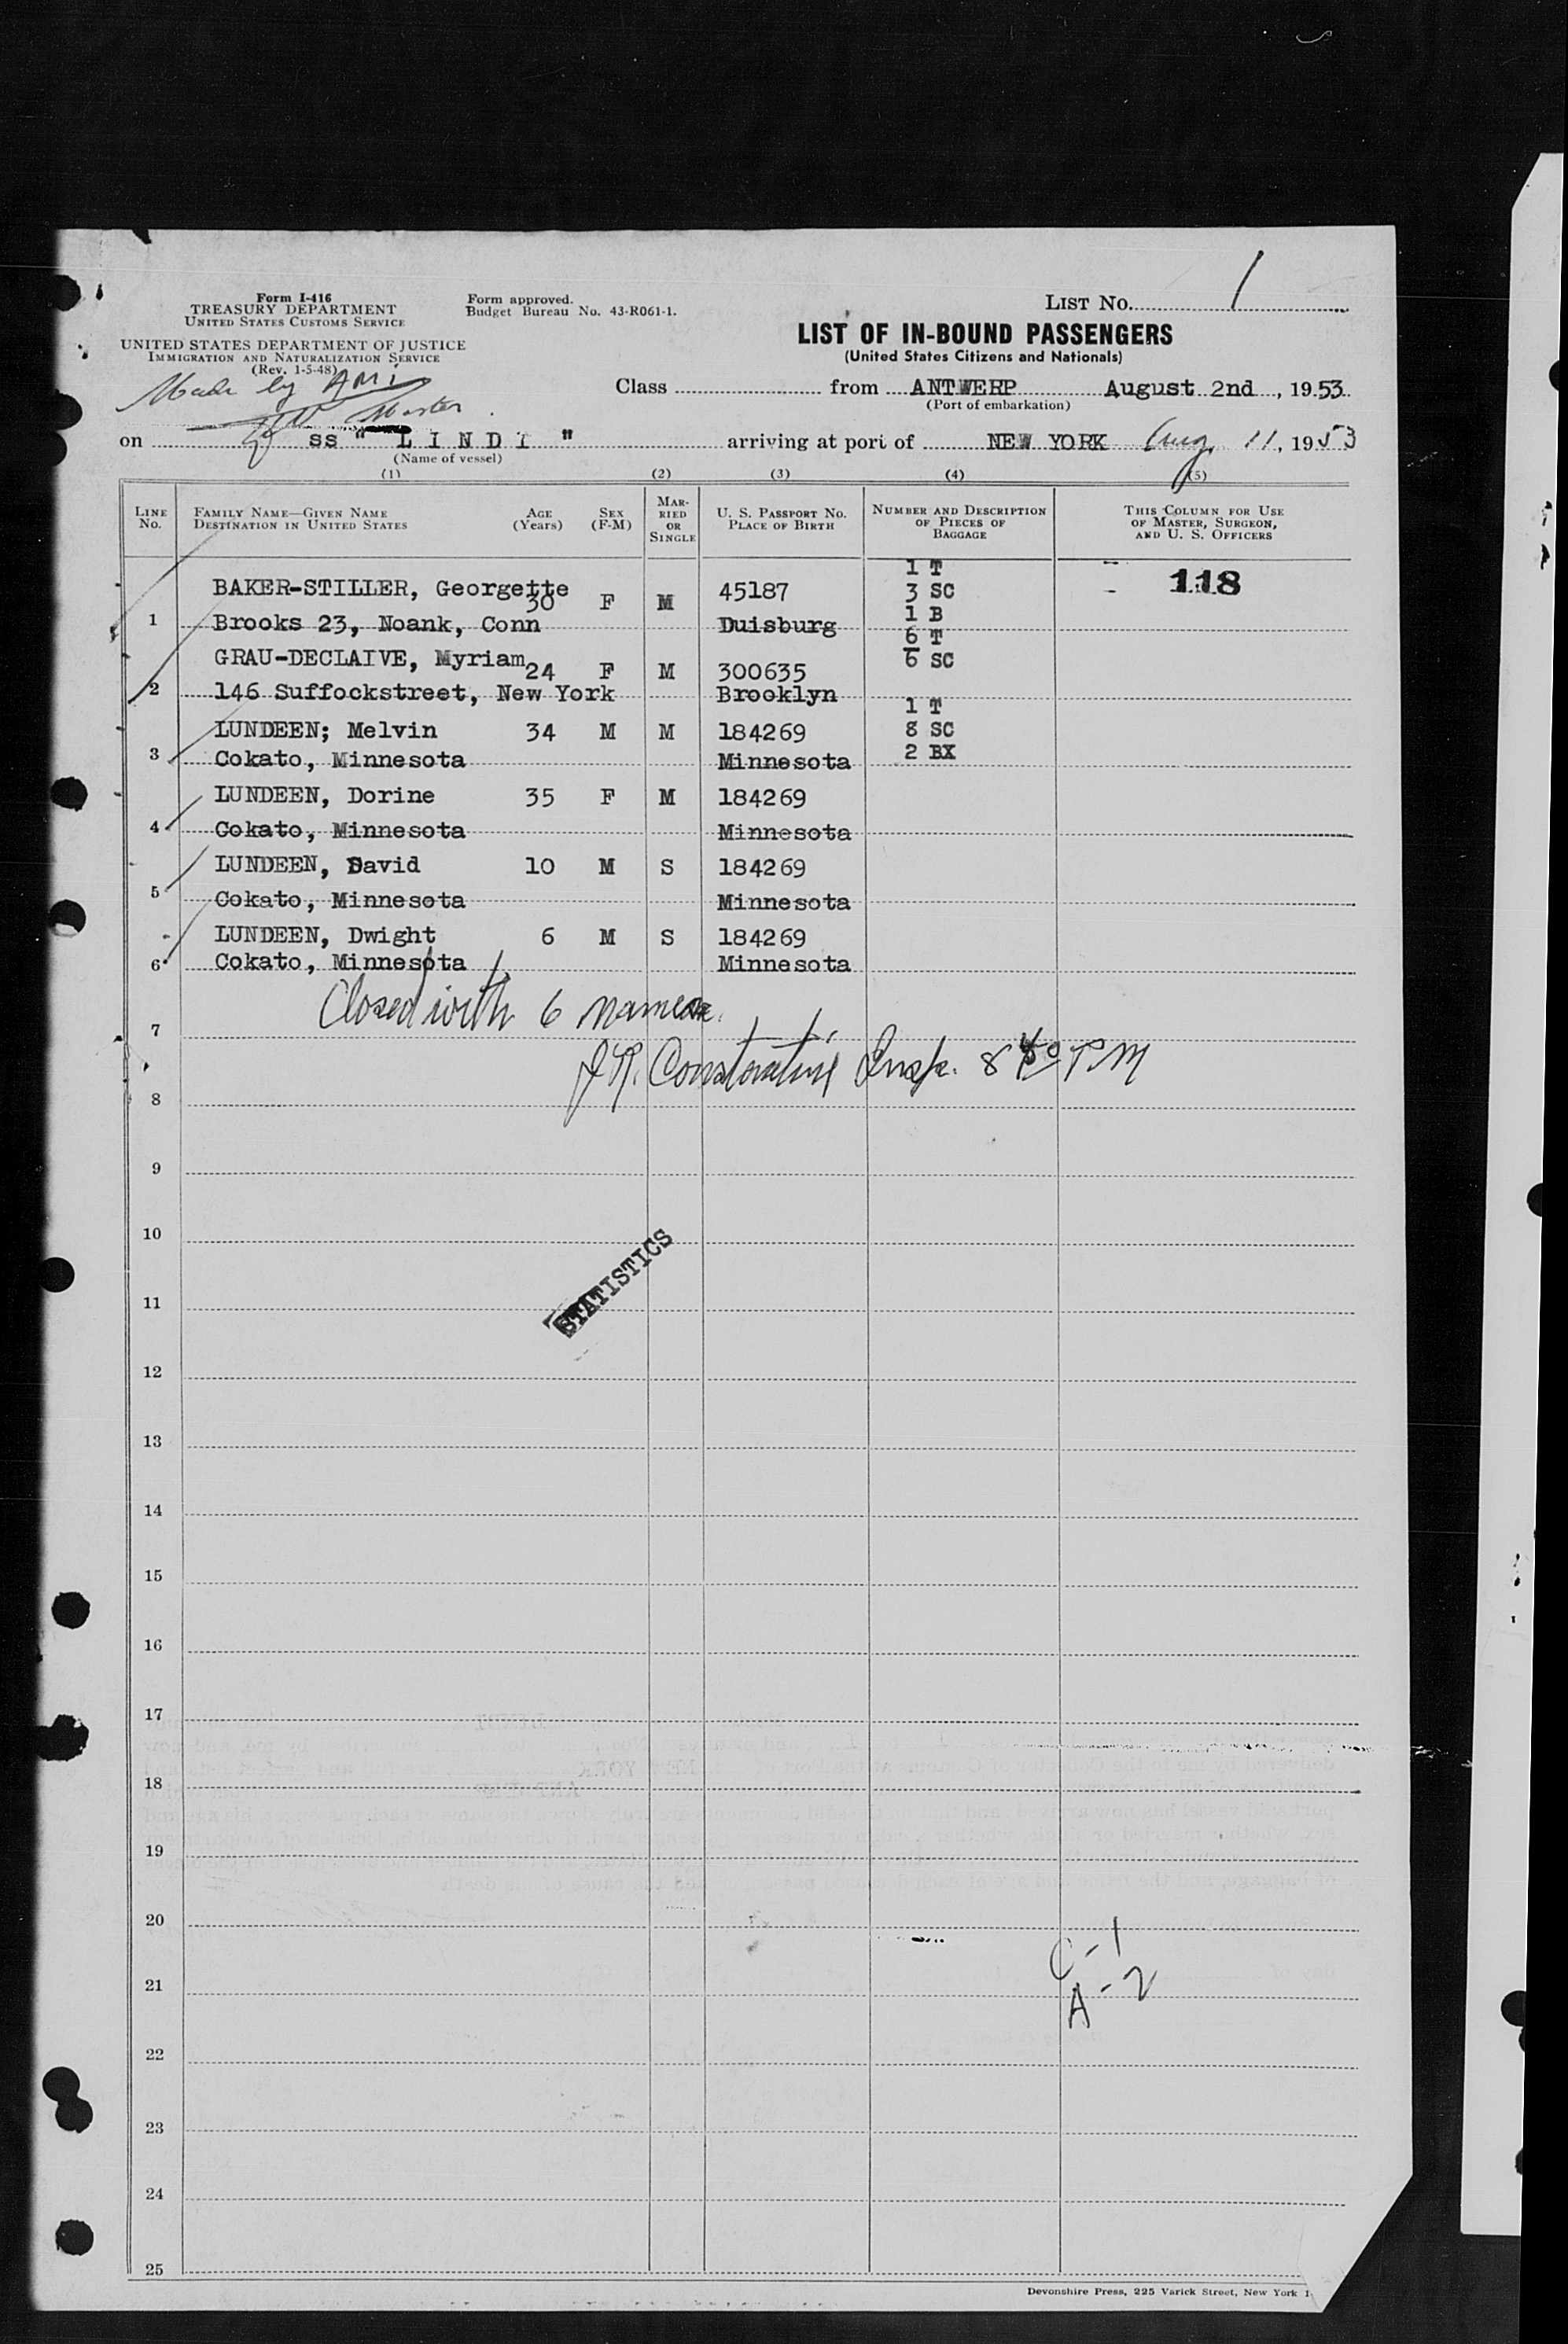 Form I-416
TREASURY DEPARTMENT
UNITED STATES CUSTOMS SERVICE
UNITED STATES DEPARTMENT OF JUSTICE
IMMIGRATION AND NATURALIZATION SERVICE
(Rev. 1-5-48)
Form approved.
Budget Bureau No. 43-R061-1.
LIST NO. 1
LIST OF IN-BOUND PASSENGERS
(United States Citizens and Nationals)
Made by
Master
Class from ANTWERP August 2nd, 1953
(Port of embarkation)
on ss " L I N D I " arriving at port of NEW YORK Aug 11, 1953
(Name of vessel)
(1) (2) (3) (4) (5)
LINE NO. FAMILY NAME—GIVEN NAME DESTINATION IN UNITED STATES AGE (Years) SEX (F-M) MARRIED OR SINGLE U. S. PASSPORT NO. PLACE OF BIRTH NUMBER AND DESCRIPTION OF PIECES OF BAGGAGE THIS COLUMN FOR USE OF MASTER, SURGEON, AND U. S. OFFICERS
1 T
BAKER-STILLER, Georgette 30 F M 45187 3 SC 118
1 Brooks 23, Noank, Conn Duisburg 1 B
6 T
GRAU-DECLAIVE, Myriam 24 F M 300635 6 SC
2 146 Suffockstreet, New York Brooklyn
1 T
LUNDEEN; Melvin 34 M M 184269 8 SC
3 Cokato, Minnesota Minnesota 2 BX
LUNDEEN, Dorine 35 F M 184269
4 Cokato, Minnesota Minnesota
LUNDEEN, David 10 M S 184269
5 Cokato, Minnesota Minnesota
LUNDEEN, Dwight 6 M S 184269
6 Cokato, Minnesota Minnesota
Closed with 6 names.
7
J.R. Constantine Insp. PM
8
9
10
STATISTICS
11
12
13
14
15
16
17
18
19
20
C-1
21
A-2
22
23
24
25
Devonshire Press, 225 Varick Street, New York